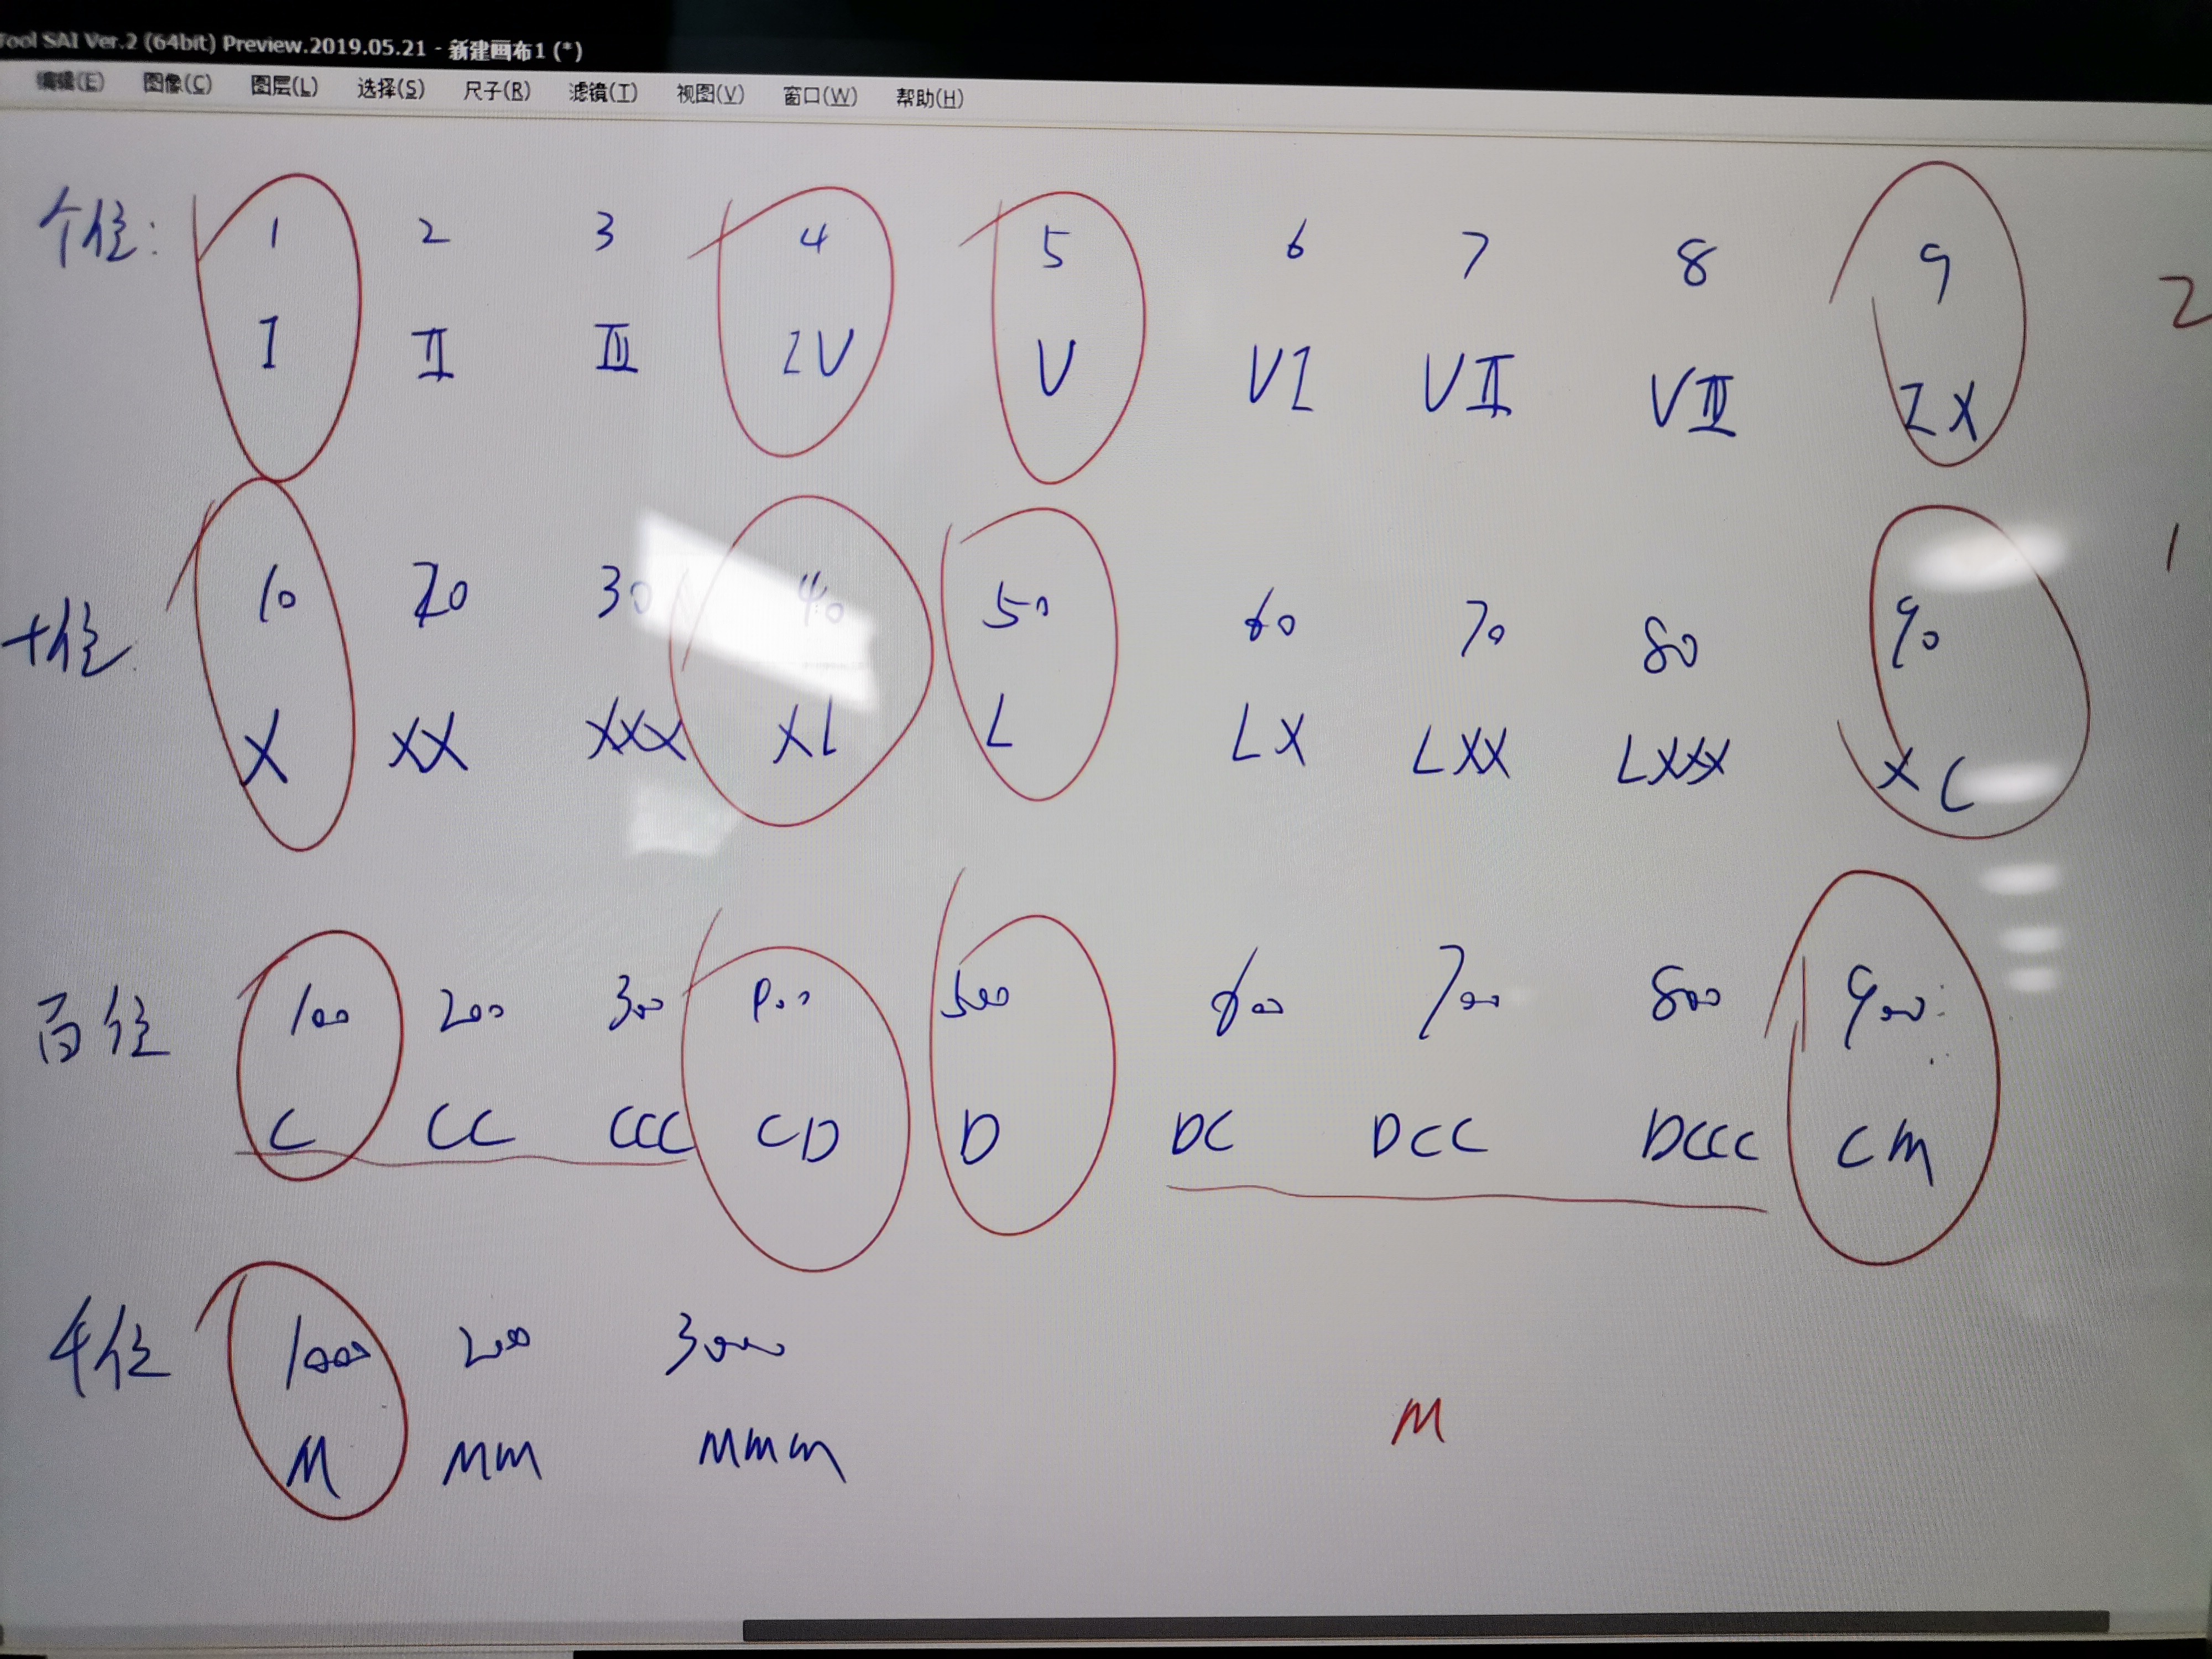 Tool SAI Ver.2 (64bit) Preview.2019.05.21 - 新建画布1 (*)
编辑(E) 图像(C) 图层(L) 选择(S) 尺子(R) 滤镜(T) 视图(V) 窗口(W) 帮助(H)
个位: 1 2 3 4 5 6 7 8 9 2
I II III IV V VI VII VIII IX
十位 10 20 30 40 50 60 70 80 90 1
X XX XXX XL L LX LXX LXXX XC
百位 100 200 300 400 500 600 700 800 900
C CC CCC CD D DC DCC DCCC CM
千位 1000 2000 3000
M MM MMM M